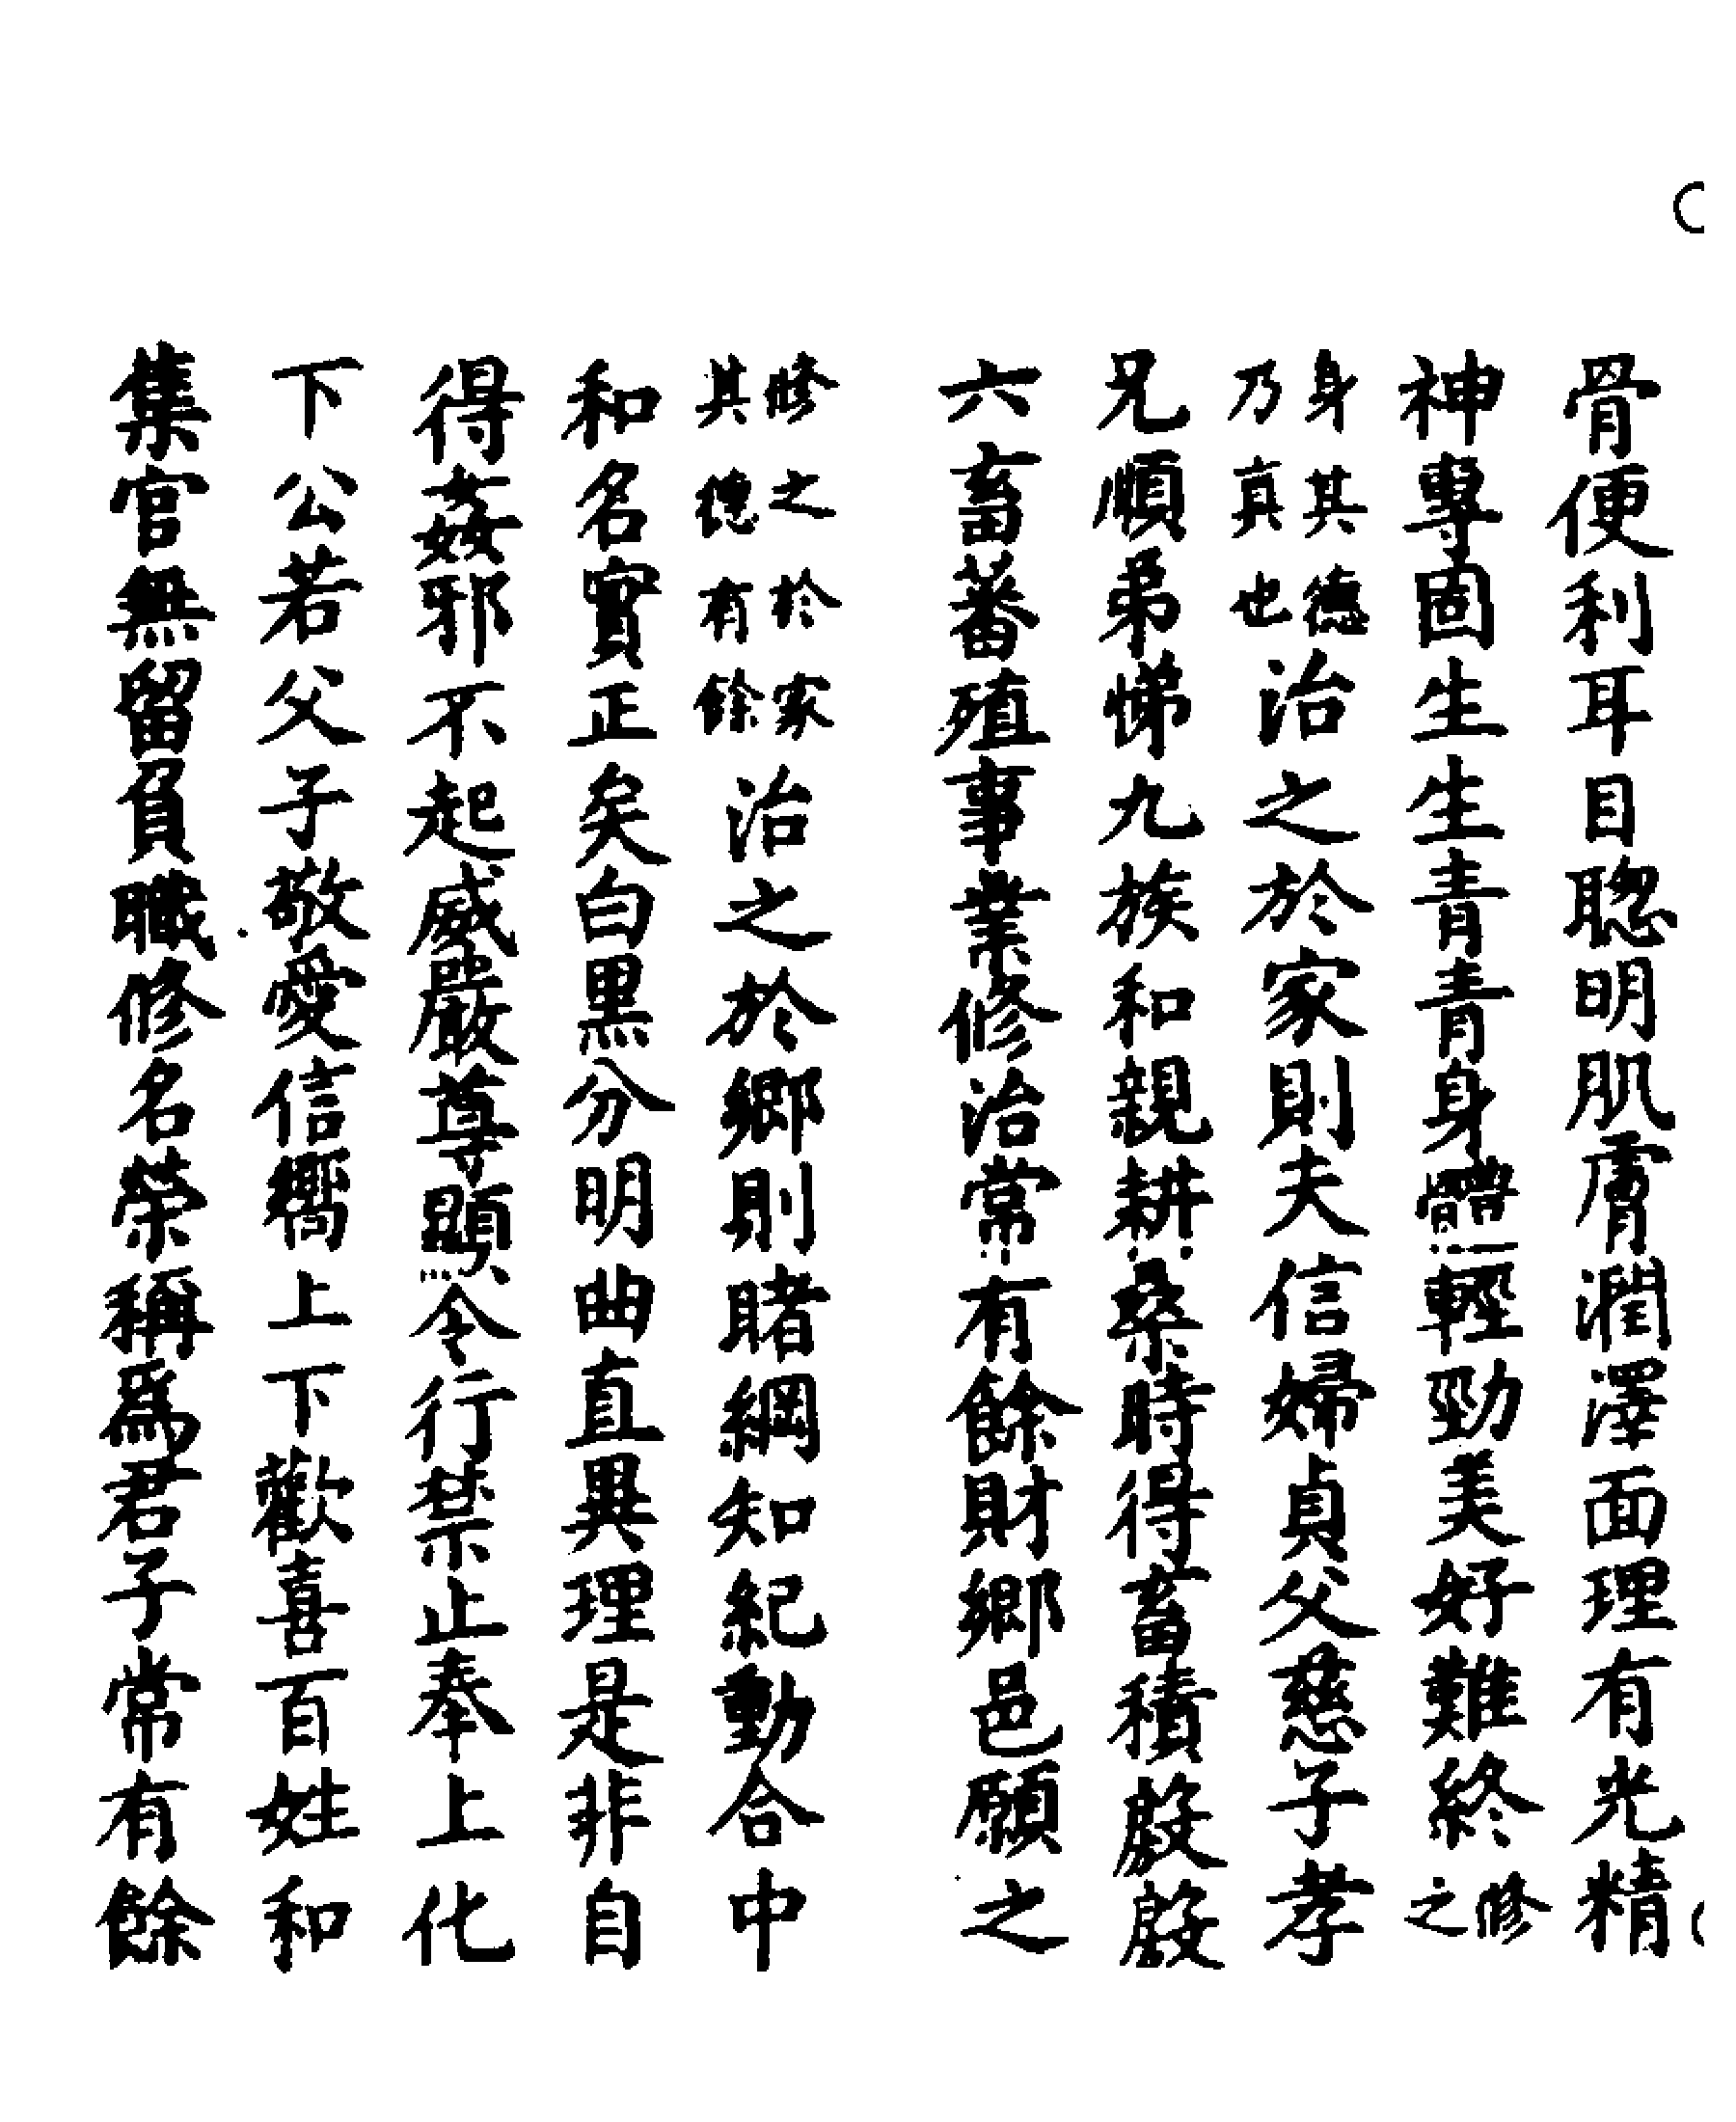 骨便利耳目聦明肌膚潤澤面理有光精
神專固生生青青身體輕勁美好難終修之
身其德乃真也治之於家則夫信婦貞父慈子孝
兄順弟悌九族和親耕桑時得畜積殷殷
六畜蕃殖事業修治常有餘財鄉邑願之
修之於家其德有餘治之於鄉則睹綱知紀動合中
和名實正矣白黑分明曲直異理是非自
得姦邪不起威嚴尊顯令行禁止奉上化
下公若父子敬愛信嚮上下歡喜百姓和
集官無留負職修名榮稱爲君子常有餘